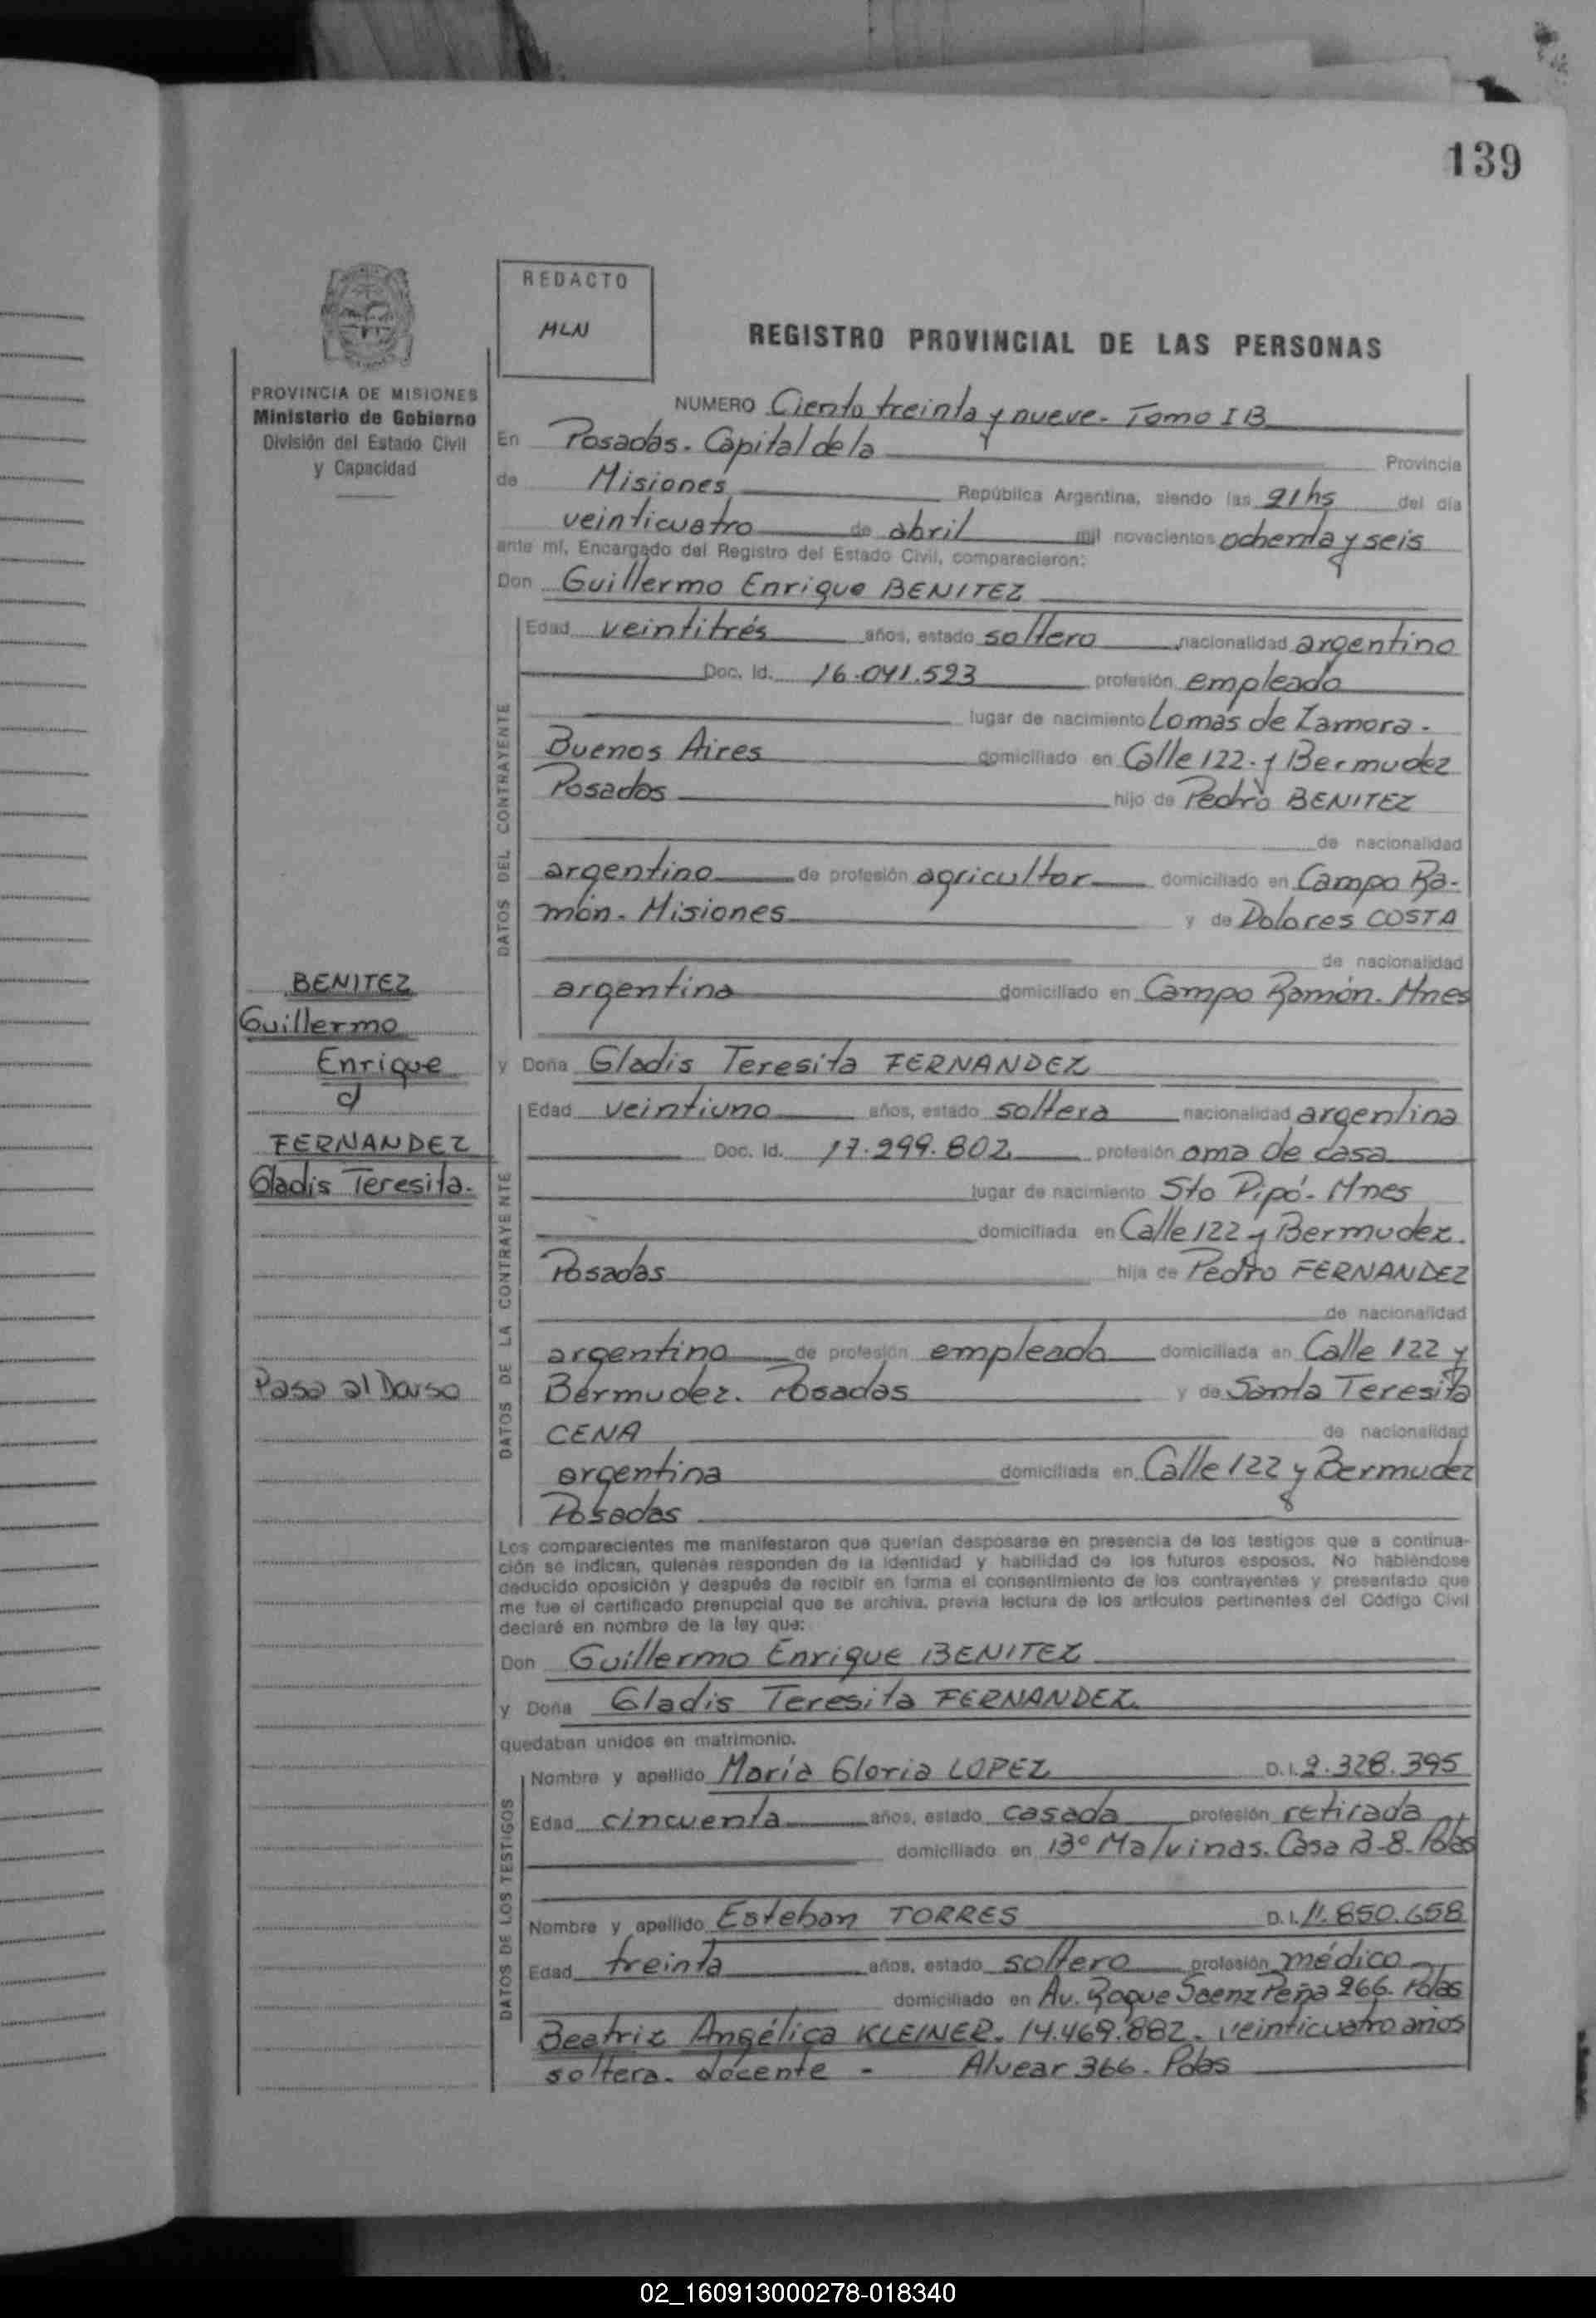 139
REDACTO
MLN
REGISTRO PROVINCIAL DE LAS PERSONAS
PROVINCIA DE MISIONES
Ministerio de Gobierno
División del Estado Civil
y Capacidad
NUMERO Ciento treinta y nueve - Tomo I B
En Posadas. Capital de la Provincia
de Misiones República Argentina, siendo las 21 hs del día
veinticuatro de abril mil novecientos ochenta y seis
ante mí, Encargado del Registro del Estado Civil, comparecieron:
Don Guillermo Enrique BENITEZ
DATOS DEL CONTRAYENTE
Edad veintitrés años, estado soltero nacionalidad argentino
Doc. Id. 16.041.523 profesión empleado
lugar de nacimiento Lomas de Zamora -
Buenos Aires domiciliado en Calle 122 - y Bermudez
Posadas hijo de Pedro BENITEZ
de nacionalidad
argentino de profesión agricultor domiciliado en Campo Ra-
món - Misiones y de Dolores COSTA
de nacionalidad
argentina domiciliado en Campo Ramón. Mnes
BENITEZ
Guillermo
Enrique
FERNANDEZ
Gladis Teresita.
Pasa al Dorso
y Doña Gladis Teresita FERNANDEZ
DATOS DE LA CONTRAYENTE
Edad veintiuno años, estado soltera nacionalidad argentina
Doc. Id. 17.299.802 profesión ama de casa
lugar de nacimiento Sto Pipó - Mnes
domiciliada en Calle 122 y Bermudez.
Posadas hija de Pedro FERNANDEZ
de nacionalidad
argentino de profesión empleado domiciliada en Calle 122 y
Bermudez. Posadas y de Santa Teresita
CENA de nacionalidad
argentina domiciliada en Calle 122 y Bermudez
Posadas
Los comparecientes me manifestaron que querían desposarse en presencia de los testigos que a continua-
ción se indican, quienes responden de la identidad y habilidad de los futuros esposos. No habiéndose
deducido oposición y después de recibir en forma el consentimiento de los contrayentes y presentado que
me fue el certificado prenupcial que se archiva, previa lectura de los artículos pertinentes del Código Civil
declaré en nombre de la ley que:
Don Guillermo Enrique BENITEZ
y Doña Gladis Teresita FERNANDEZ
quedaban unidos en matrimonio.
DATOS DE LOS TESTIGOS
Nombre y apellido María Gloria LOPEZ D.I. 2.328.395
Edad cincuenta años, estado casada profesión retirada
domiciliado en 13º Malvinas. Casa B-8. Pdas
Nombre y apellido Esteban TORRES D.I. 11.850.658
Edad treinta años, estado soltero profesión médico
domiciliado en Av. Roque Saenz Peña 266. Pdas
Beatriz Angélica KLEINER. 14.469.882 - veinticuatro años
soltera - docente - Alvear 366 - Pdas
02_160913000278-018340